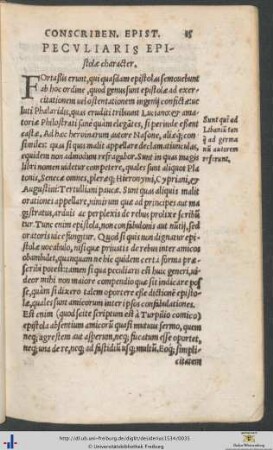 CONSCRIBEN. EPIST. 15
PECVLIARIS EPI-
stolæ character.
FOrtassis erunt, qui quasdam epistolas semouebunt
ab hoc ordine, quod genus sunt epistolæ ad exer-
citationem uel ostentationem ingenij confictæ: ue
luti Phalaridis, quas eruditi tribuunt Luciano: & ama-
toriæ Philostrati sanè quàm elegātes, si perinde essent
castæ. Ad hæc heroinarum autore Nasone, aliæq; con-
similes: quas si quis malit appellare declamatiunculas,
equidem non admodum refragabor. Sunt in quas magis
libri nomen uideatur competere, quales sunt aliquot Pla
tonis, Senecæ omnes, pleræq; Hieronymi, Cypriani, et
Augustini: Tertulliani paucæ. Sunt quas aliquis malit
orationes appellare, ueluti quæ ad principes aut ma
gistratus, arduis ac perplexis de rebus prolixe scribun
tur. Tunc enim epistola, non confabulonis aut nūtij, sed
oratoris uice fungitur. Quod si quis non dignatur epi-
stolæ uocabulo, nisi quæ priuatis de rebus inter amicos
obambulet, quanquam ne hic quidem certa forma præ-
scribi potest: tamen si qua peculiaris est huic generi, ui-
deor mihi non maiore compendio què sit indicare pos
se, quàm si dixero talem oportere esse dictionē episto-
læ, quales sunt amicorum inter ipsos confabulationes.
Est enim (quod scite scriptum est à Turpilio comico)
epistola absentium amicorū quasi mutuus sermo, quem
neq; agrestem aut asperum, neq; fucatum esse oportet,
neq; una de re, neq; ad fastidiū usq; multū. Eoq; simpli-
citatem
Sunt qui ad
Libaniū tan
q̃ ad germa
nū autorem
referunt.
http://dl.ub.uni-freiburg.de/diglit/desiderius1534/0035
© Universitätsbibliothek Freiburg
Baden-Württemberg